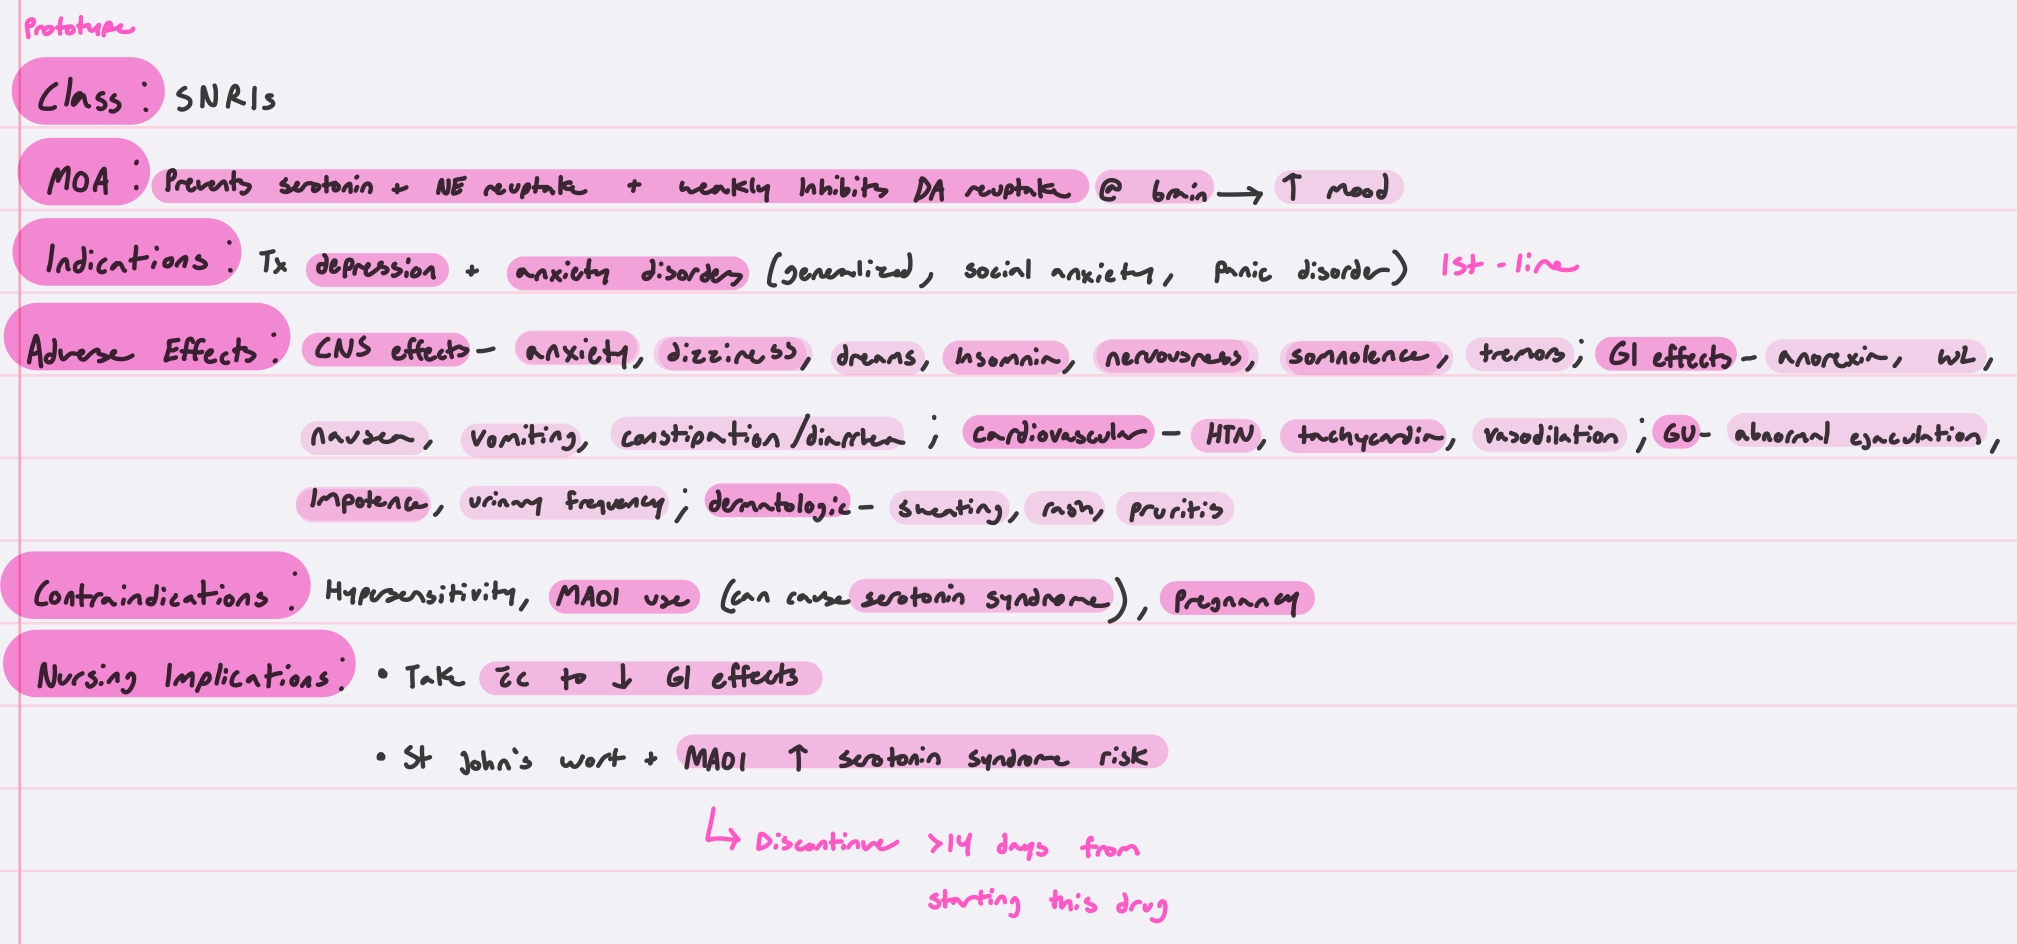 Prototype
Class: SNRIs
MOA: Prevents serotonin + NE reuptake + weakly inhibits DA reuptake @ brain → ↑ mood
Indications: Tx depression + anxiety disorders (generalized, social anxiety, panic disorder) 1st-line
Adverse Effects: CNS effects - anxiety, dizziness, dreams, insomnia, nervousness, somnolence, tremors; GI effects - anorexia, WL,
nausea, vomiting, constipation/diarrhea; cardiovascular - HTN, tachycardia, vasodilation; GU - abnormal ejaculation,
impotence, urinary frequency; dermatologic - sweating, rash, pruritis
Contraindications: Hypersensitivity, MAOI use (can cause serotonin syndrome), pregnancy
Nursing Implications: • Take c̄c to ↓ GI effects
• St John's wort + MAOI ↑ serotonin syndrome risk
↳ Discontinue >14 days from
starting this drug